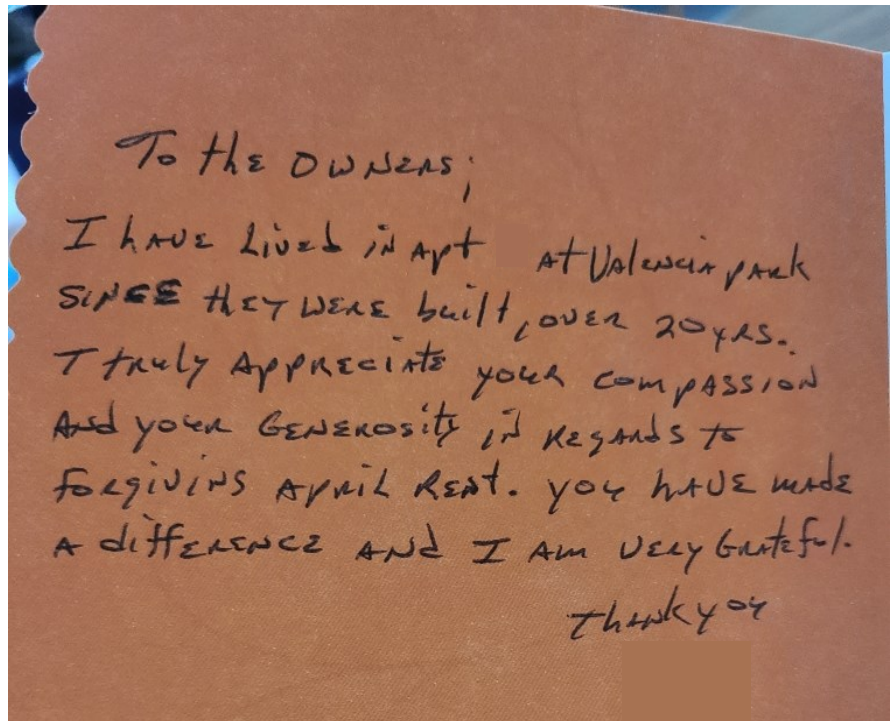 To the Owners;
I have Lived in Apt at Valencia Park
SINCE they were built, over 20 yrs.
I truly Appreciate your compassion
And your Generosity in Regards to
forgiving April Rent. you have made
A difference and I Am very Grateful.
Thank you